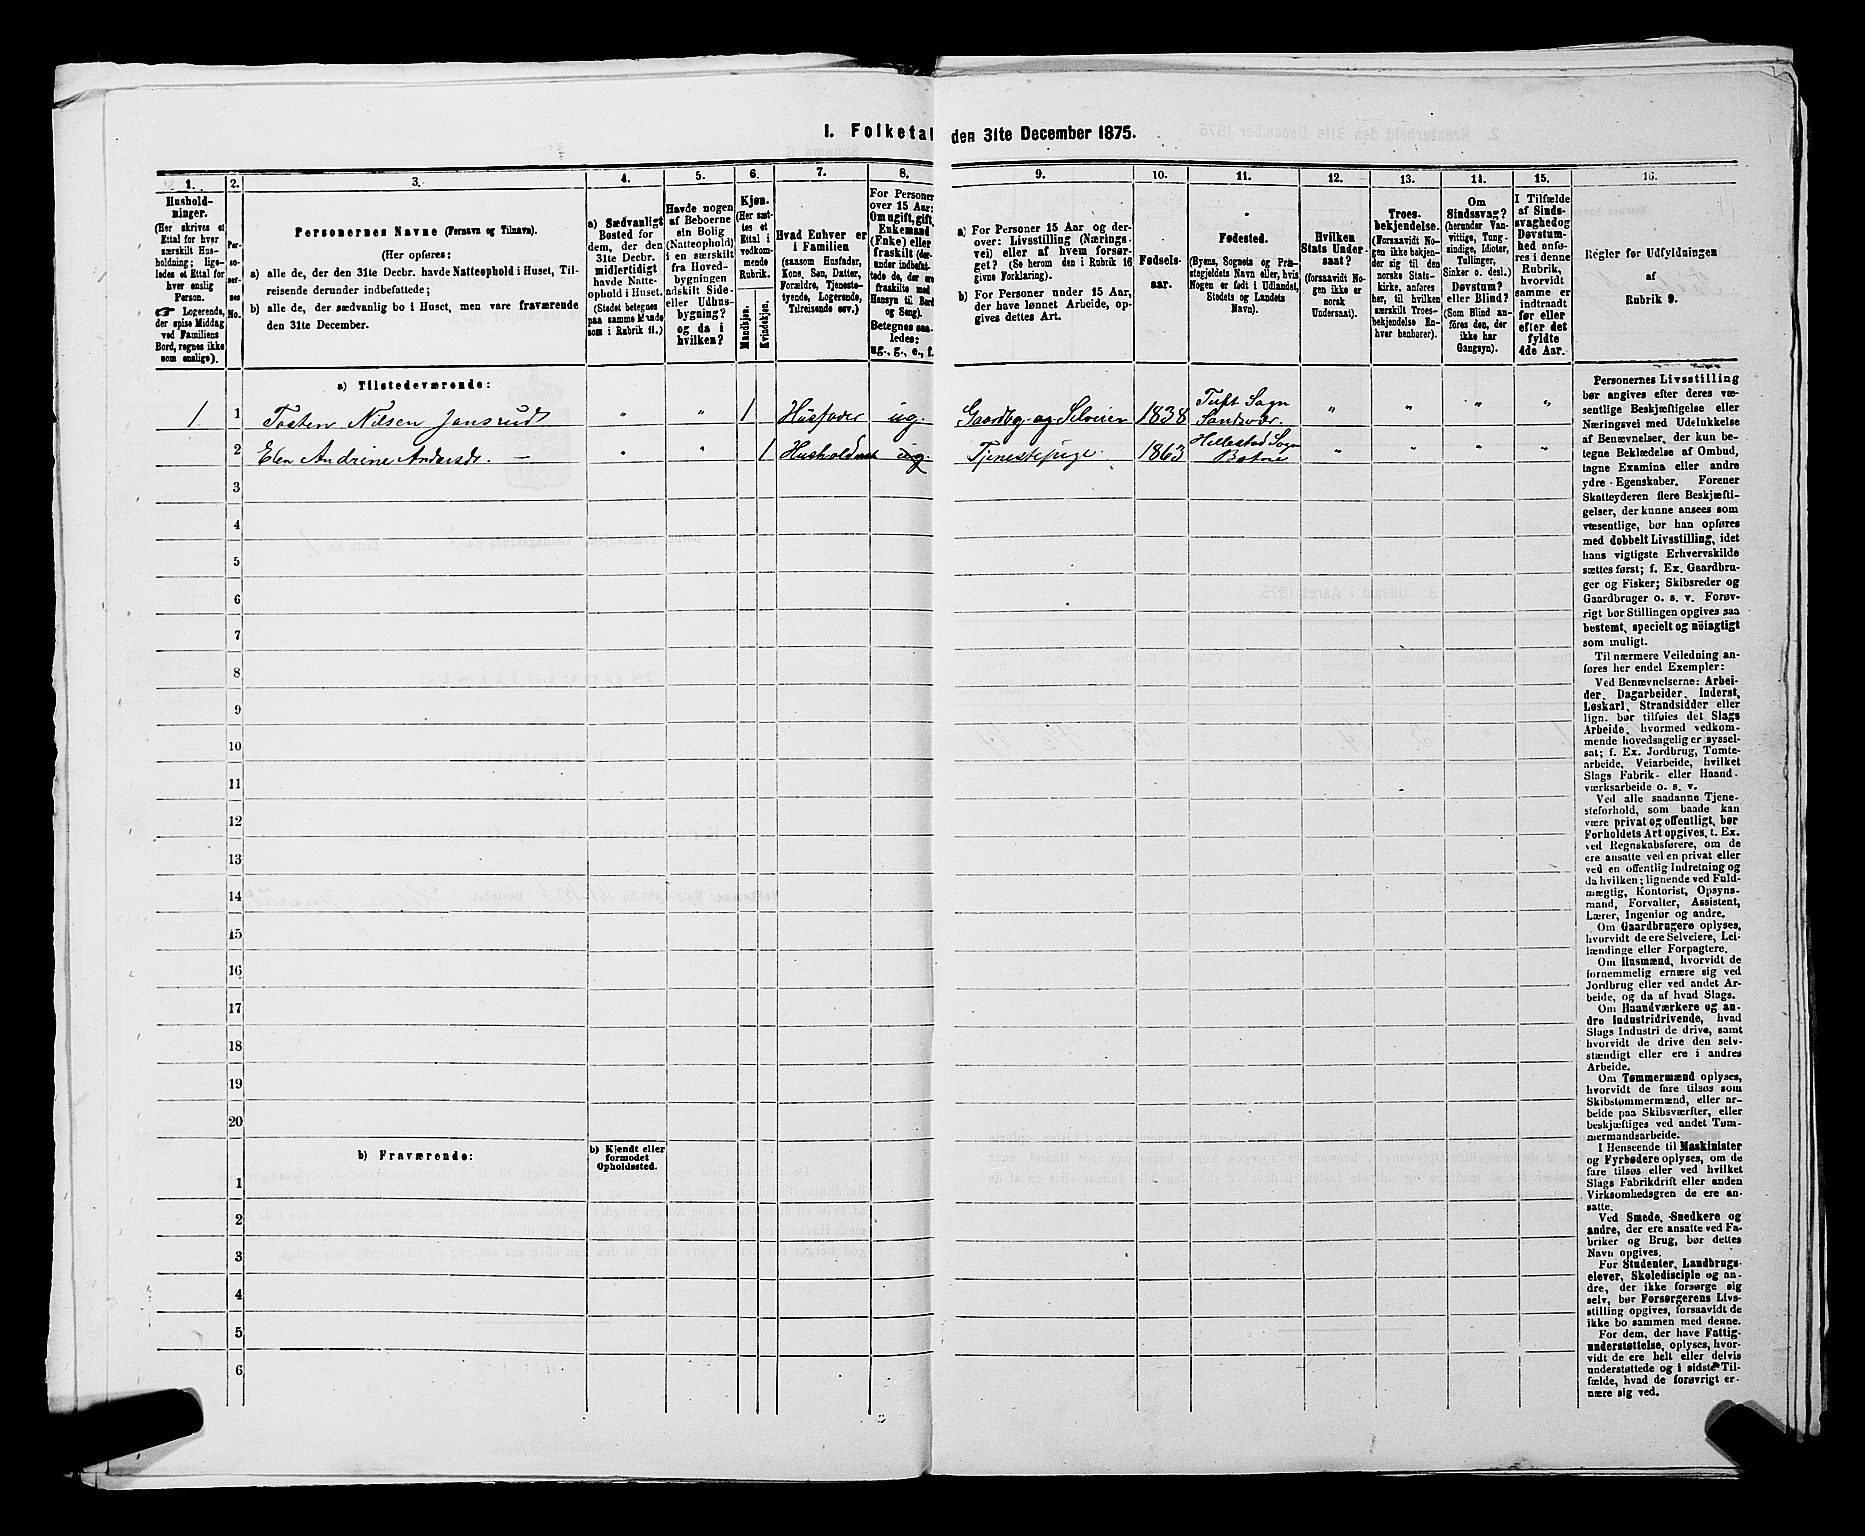 1. Folketal den 31te December 1875.
1.
Hushold-
ninger.
(Her skrives et
Ettal for hver
særskilt Hus-
holdning; lige-
ledes et Ettal for
hver enslig
Person.
☞ Logerende,
der spise Middag
ved Familiens
Bord, regnes ikke
som enslige).
2.
Per-
so-
ner-
nes
No.
3.
Personernes Navne (Fornavn og Tilnavn).
(Her opføres:
a) alle de, der den 31te Decbr. havde Natteophold i Huset, Til-
reisende derunder indbefattede;
b) alle de, der sædvanlig bo i Huset, men vare fraværende
den 31te December.
4.
a) Sædvanligt
Bosted for
dem, der den
31te Decbr.
midlertidigt
havde Natte-
ophold i Huset.
(Stedet betegnes
paa samme Maade
som i Rubrik 11.)
5.
Havde nogen
af Beboerne
sin Bolig
(Natteophold)
i en særskilt
fra Hoved-
bygningen
adskilt Side-
eller Udhus-
bygning?
og da i
hvilken?
6.
Kjøn.
(Her sæt-
tes et
Ettal i
vedkom-
mende
Rubrik.
Mandkjøn.
Kvindekjøn.
7.
Hvad Enhver er
i Familien
(saasom Husfader,
Kone, Søn, Datter,
Forældre, Tjeneste-
tyende, Logerende,
Tilreisende osv.)
8.
For Personer
over 15 Aar:
Om ugift, gift,
Enkemand
(Enke) eller
fraskilt (der-
under indbefat-
tede de, der ere
fraskilte med
Hensyn til Bord
og Seng).
Betegnes saa-
ledes:
ug., g., e., f.
9.
a) For Personer 15 Aar og der-
over: Livsstilling (Nærings-
vei) eller af hvem forsør-
get? (Se herom den i Rubrik 16
givne Forklaring).
b) For Personer under 15 Aar,
der have lønnet Arbeide, op-
gives dettes Art.
10.
Fødsels-
aar.
11.
Fødested.
(Byens, Sognets og Præ-
stegjeldets Navn eller, hvis
Nogen er født i Udlandet,
Stedets og Landets
Navn).
12.
Hvilken
Stats Under-
saat?
(forsaavidt No-
gen ikke er
norsk
Undersaat).
13.
Troes-
bekjendelse.
(Forsaavidt No-
gen ikke bekjen-
der sig til den
norske Stats-
kirke, anføres
her, til hvilken
særskilt Troes-
bekjendelse En-
hver henhører).
14.
Om
Sindssvag?
(herunder Van-
vittige, Tung-
sindige, Idioter,
Tullinger,
Sinker o. desl.)
Døvstum?
eller Blind?
(Som Blind an-
føres den, der
ikke har
Gangsyn).
15.
I Tilfælde
af Sinds-
svaghed og
Døvstum-
hed anfø-
res i denne
Rubrik,
hvorvidt
samme er
indtraadt
før eller
efter det
fyldte
4de Aar.
16.
Regler for Udfyldningen
af
Rubrik 9.
a) Tilstedeværende:
1 1 Tosten Nilsen Jonsrud " " 1 Husfader ug. Gaardbg. og Selveier 1838 Tuft Sogn Sandsvær. " " " "
2 Elen Andrine Andersdr. — " " 1 ug. Tjenestepige. 1863 Hillestad Sogn Botne " " " "
3
4
5
6
7
8
9
10
11
12
13
14
15
16
17
18
19
20
b) Fraværende:
b) Kjendt eller
formodet
Opholdssted.
1
2
3
4
5
6
Personernes Livsstilling
bør angives efter deres væ-
sentlige Beskjæftigelse eller
Næringsvei med Udelukkelse
af Benævnelser, der kun be-
tegne Beklædelse af Ombud,
tagne Examina eller andre
ydre Egenskaber. Forener
Skatteyderen flere Beskjæfti-
gelser, der kunne ansees som
væsentlige, bør han opføres
med dobbelt Livsstilling, idet
hans vigtigste Erhvervskilde
sættes først; f. Ex. Gaardbru-
ger og Fisker; Skibsreder og
Gaardbruger o. s. v. Forøv-
rigt bør Stillingen opgives saa
bestemt, specielt og nöiagtigt
som muligt.
Til nærmere Veiledning an-
føres her endel Exempler:
Ved Benævnelserne: Arbei-
der, Dagarbeider, Inderst,
Løskarl, Strandsidder eller
lign. bør tilføies det Slags
Arbeide, hvormed vedkom-
mende hovedsagelig er syssel-
sat; f. Ex. Jordbrug, Tomte-
arbeide, Veiarbeide, hvilket
Slags Fabrik- eller Haand-
værksarbeide o. s. v.
Ved alle saadanne Tjene-
steforhold, som baade kan
være privat og offentligt, bør
Forholdets Art opgives, t. Ex.
ved Regnskabsførere, om de
ere ansatte ved en privat eller
ved en offentlig Indretning og
da hvilken; lignende ved Fuld-
mægtig, Kontorist, Opsyns-
mand, Forvalter, Assistent,
Lærer, Ingeniør og andre.
Om Gaardbrugere oplyses,
hvorvidt de ere Selveiere, Lei-
lændinge eller Forpagtere.
Om Husmænd, hvorvidt de
fornemmelig ernære sig ved
Jordbrug eller ved andet Ar-
beide, og da af hvad Slags.
Om Haandværkere og an-
dre Industridrivende, hvad
Slags Industri de drive, samt
hvorvidt de drive den selv-
stændigt eller ere i andres
Arbeide.
Om Tømmermænd oplyses,
hvorvidt de fare tilsøs som
Skibstømmermænd, eller ar-
beide paa Skibsværfter, eller
beskjæftiges ved andet Tøm-
mermandsarbeide.
I Henseende til Maskinister
og Fyrbødere oplyses, om de
fare tilsøs eller ved hvilket
Slags Fabrikdrift eller anden
Virksomhedsgren de ere an-
satte.
Ved Smede, Snedkere og
andre, der ere ansatte ved Fa-
briker og Brug, bør dettes
Navn opgives.
For Studenter, Landbrugs-
elever, Skoledisciple og an-
dre, der ikke forsørge sig
selv, bør Forsørgerens Livs-
stilling opgives, forsaavidt de
ikke bo sammen med denne.
For dem, der have Fattig-
understøttelse, oplyses, hvor-
vidt de ere helt eller delvis
understøttede og i sidste Til-
fælde, hvad de forøvrigt er-
nære sig ved.